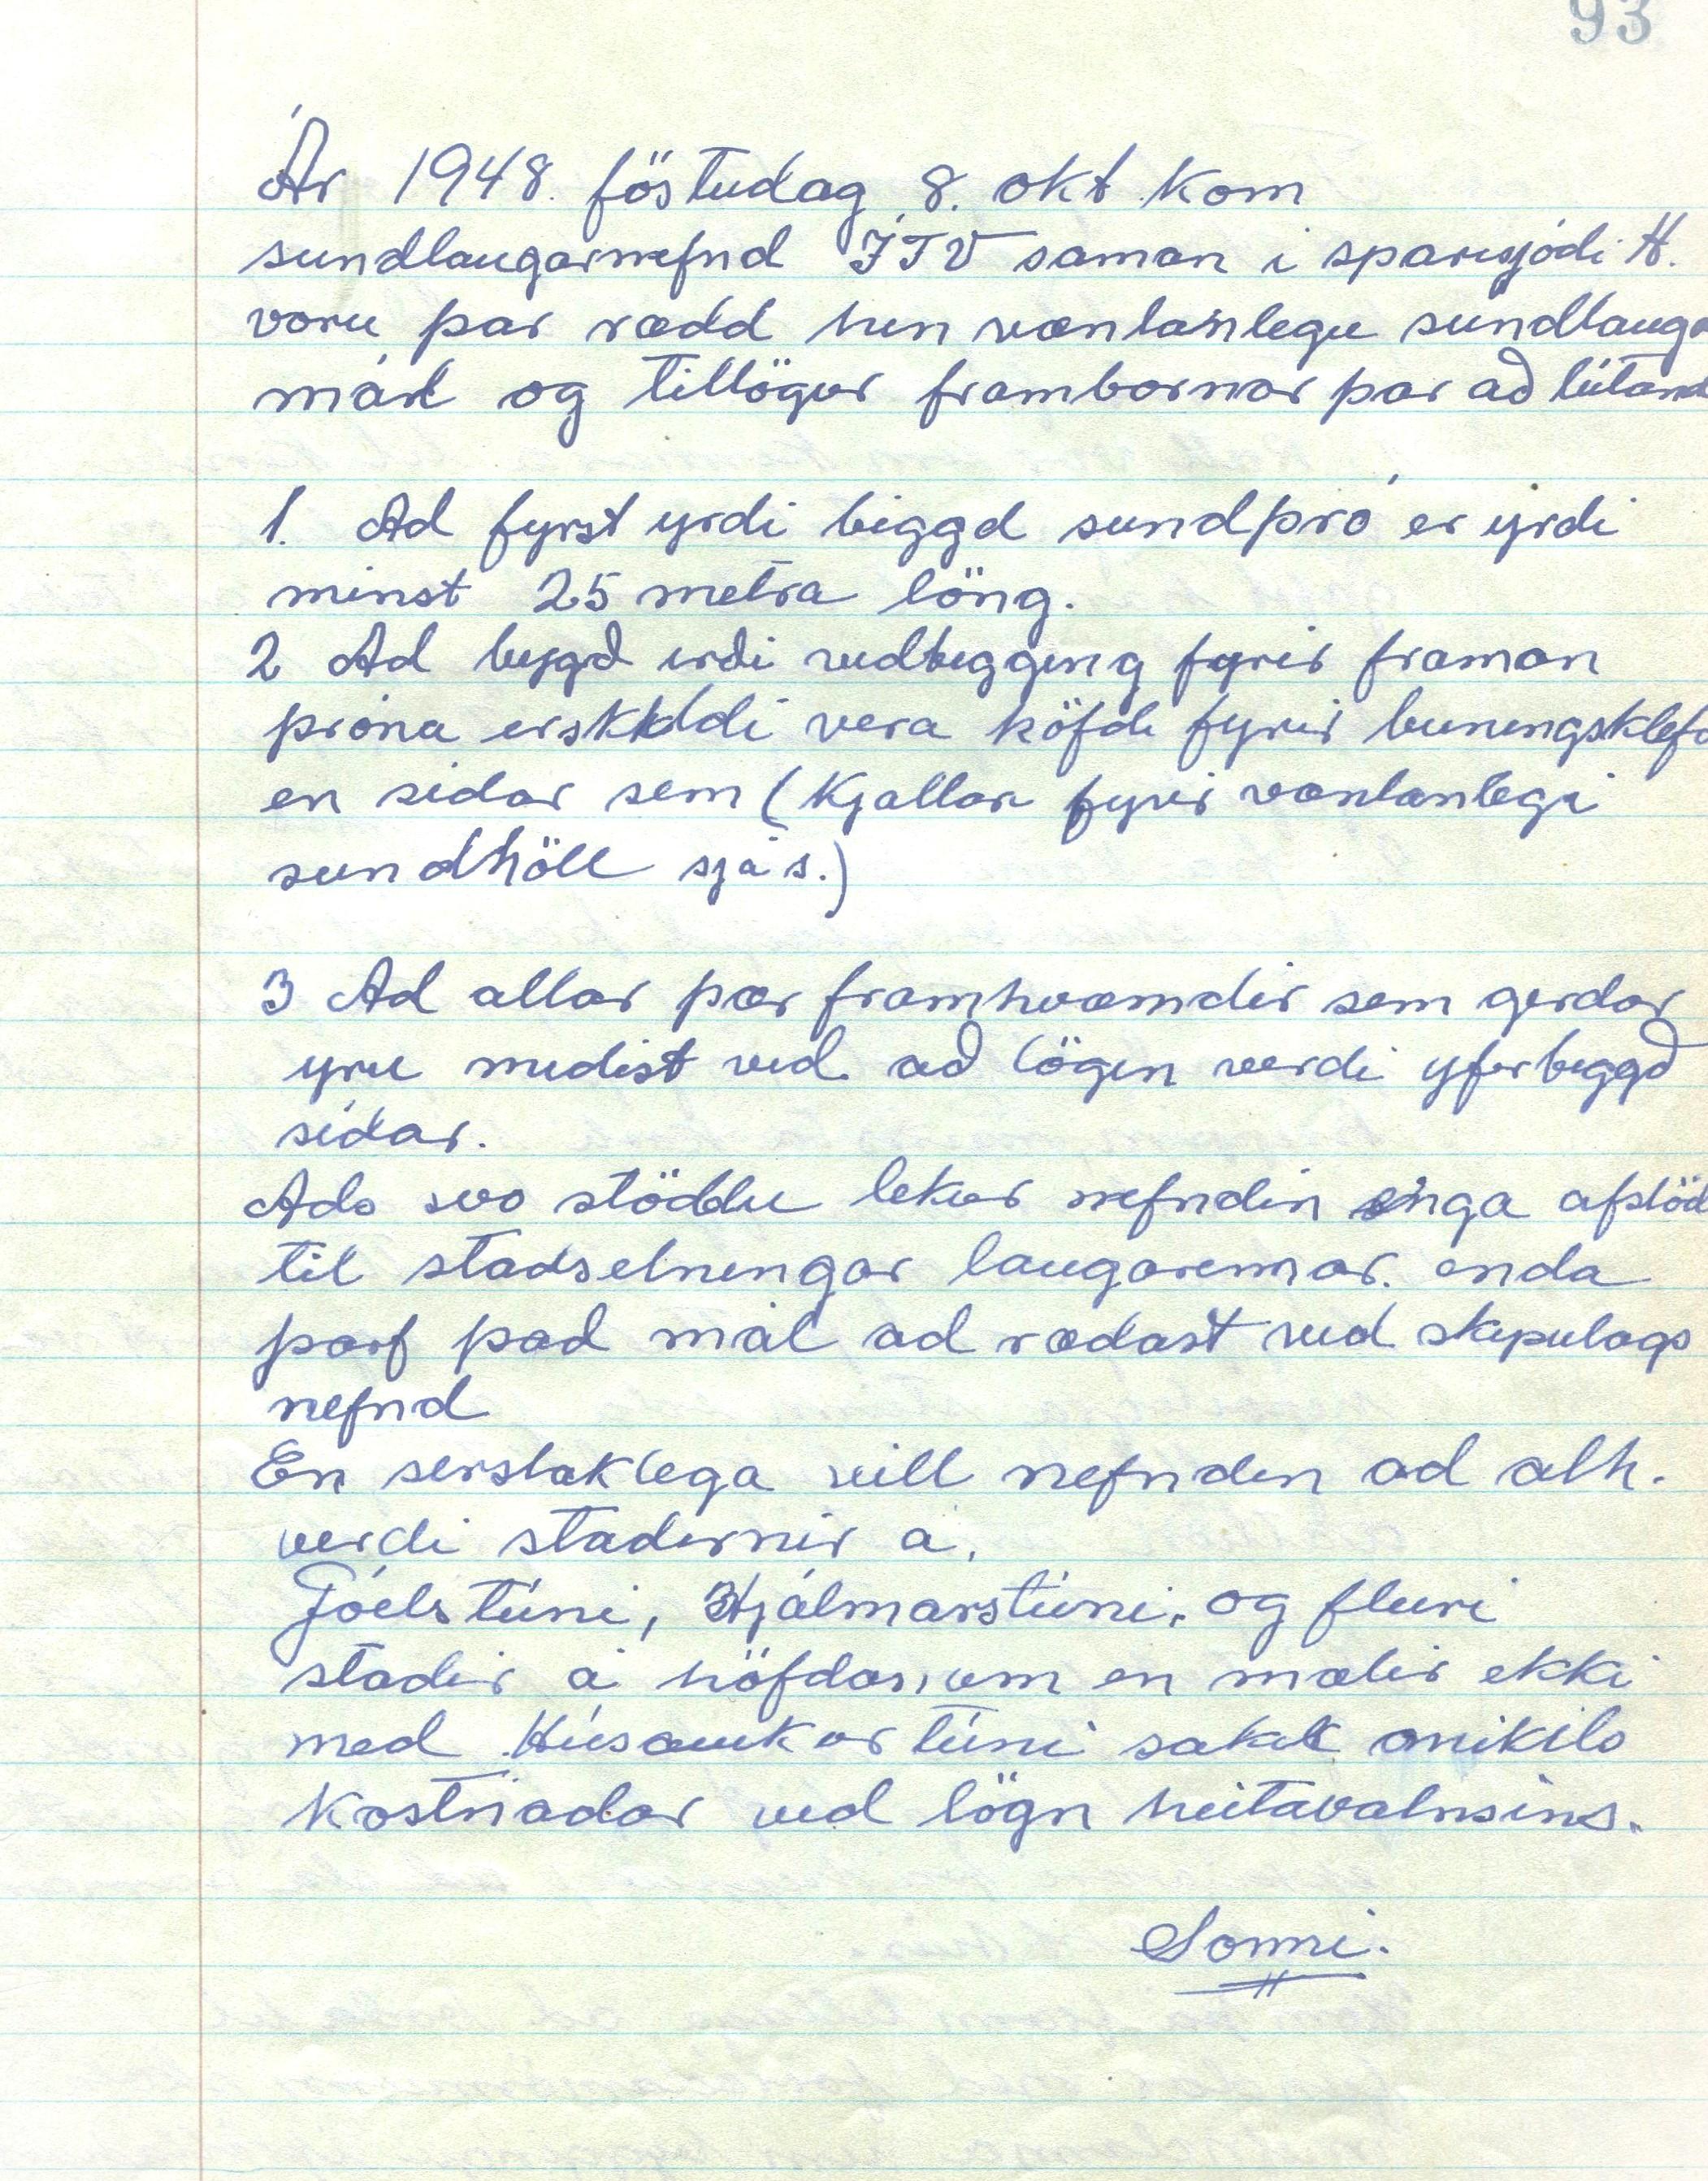 93
Ár 1948. föstudag 8. okt kom
sundlaugarnefnd ÍTV saman i sparisjódi H.
voru þar rædd hin væntanlegu sundlauga
mál og tillögur frambornar þar að lútand
1. Ad fyrst yrdi biggd sundþró er yrdi
minst 25 metra löng.
2 Ad bygð irði vidbygging fyrir framan
þróna er skildi vera höfd fyrir buningsklefa
en sidar sem (Kjallari fyrir væntanlegi
sundhöll sjá s.)
3 Ad allar þær framhvæmdir sem gerdar
yru midist vid að lögin verdi yfirbiggð
sídar.
Ad svo stöddu tekur nefndin enga afstöd
til stadsetningar laugarennar. enda
þarf þad mál ad rædast vid skipulags
nefnd
En serstaklega vill nefnden ad ath.
verdi stadirnir á.
Jóelstúni, Hjálmarstúni, og fleiri
stadir á höfdanum en mælir ekki
med Húsavikurtúni sakir mikils
kostnadar ved lögn heitavatnsins.
Sonni.